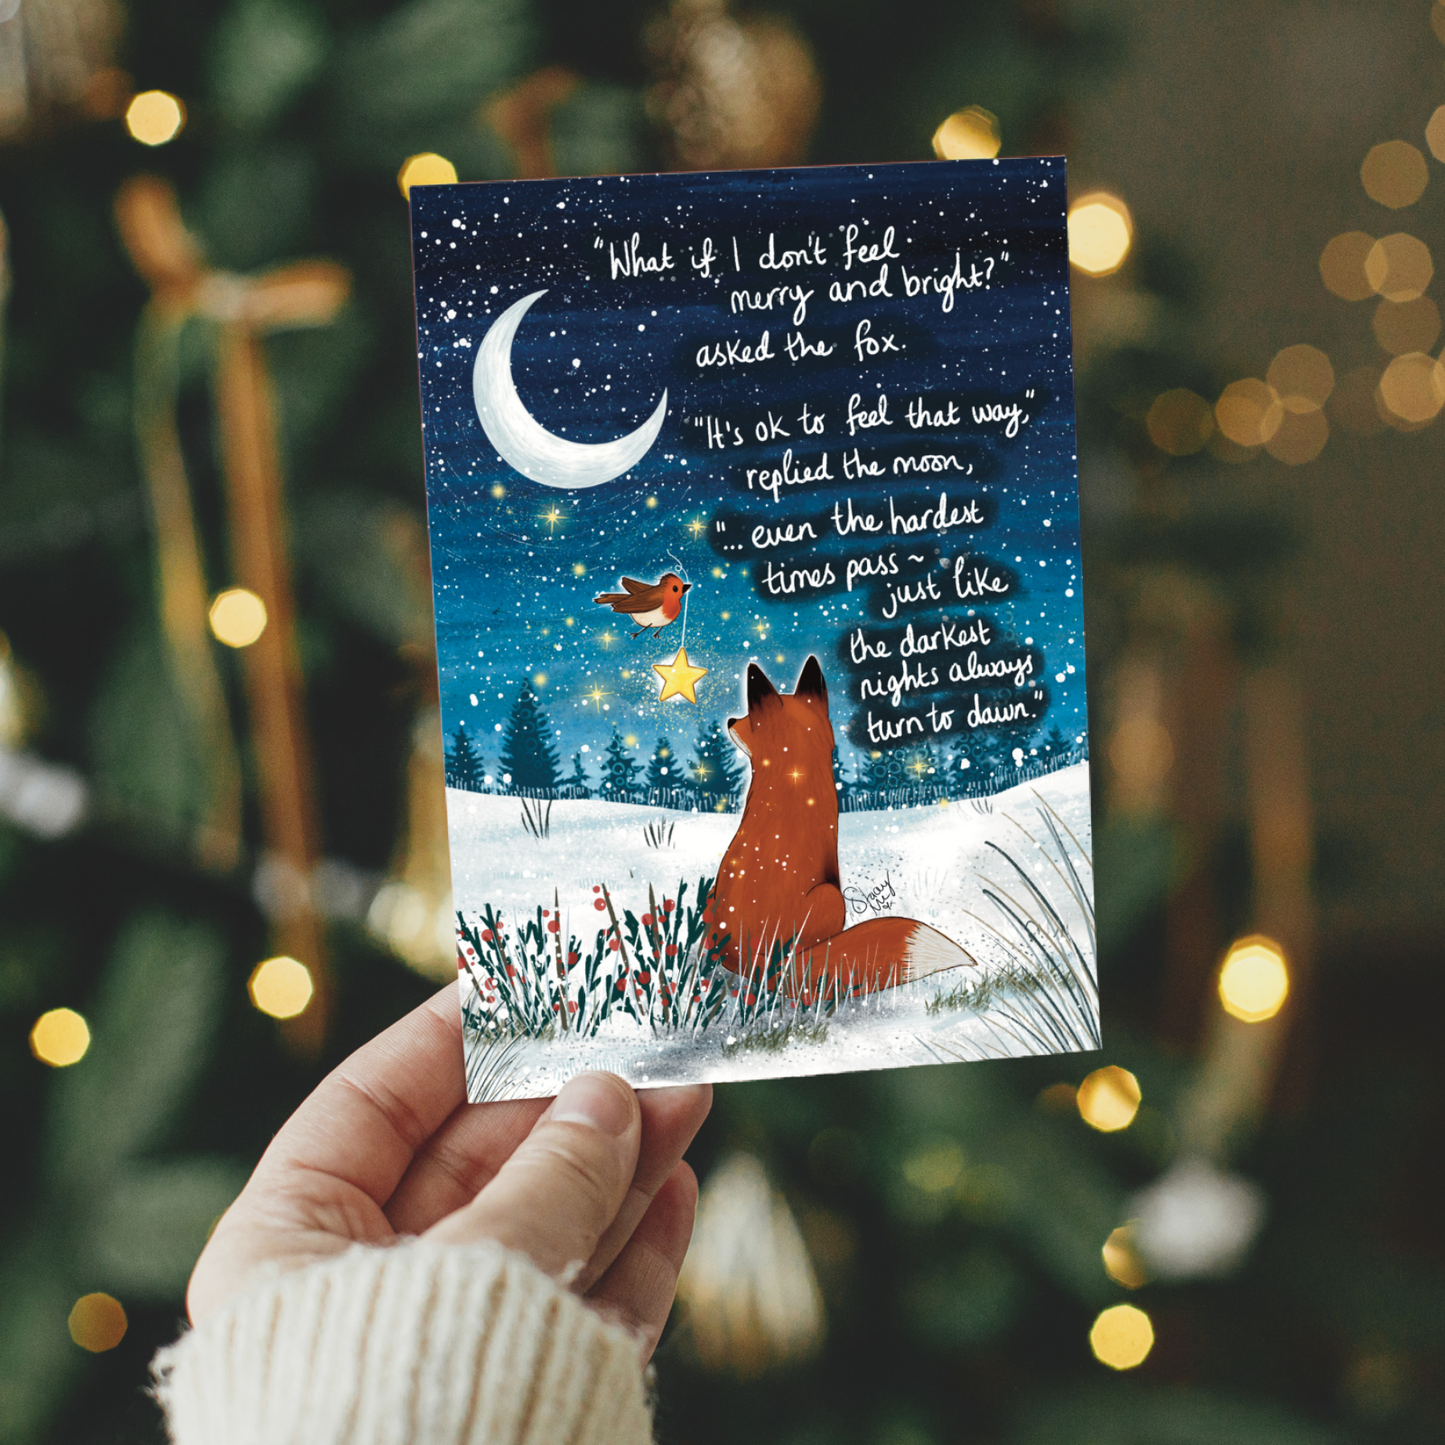 "What if I don't feel
merry and bright?"
asked the fox.
"It's ok to feel that way,"
replied the moon,
"... even the hardest
times pass ~
just like
the darkest
nights always
turn to dawn."